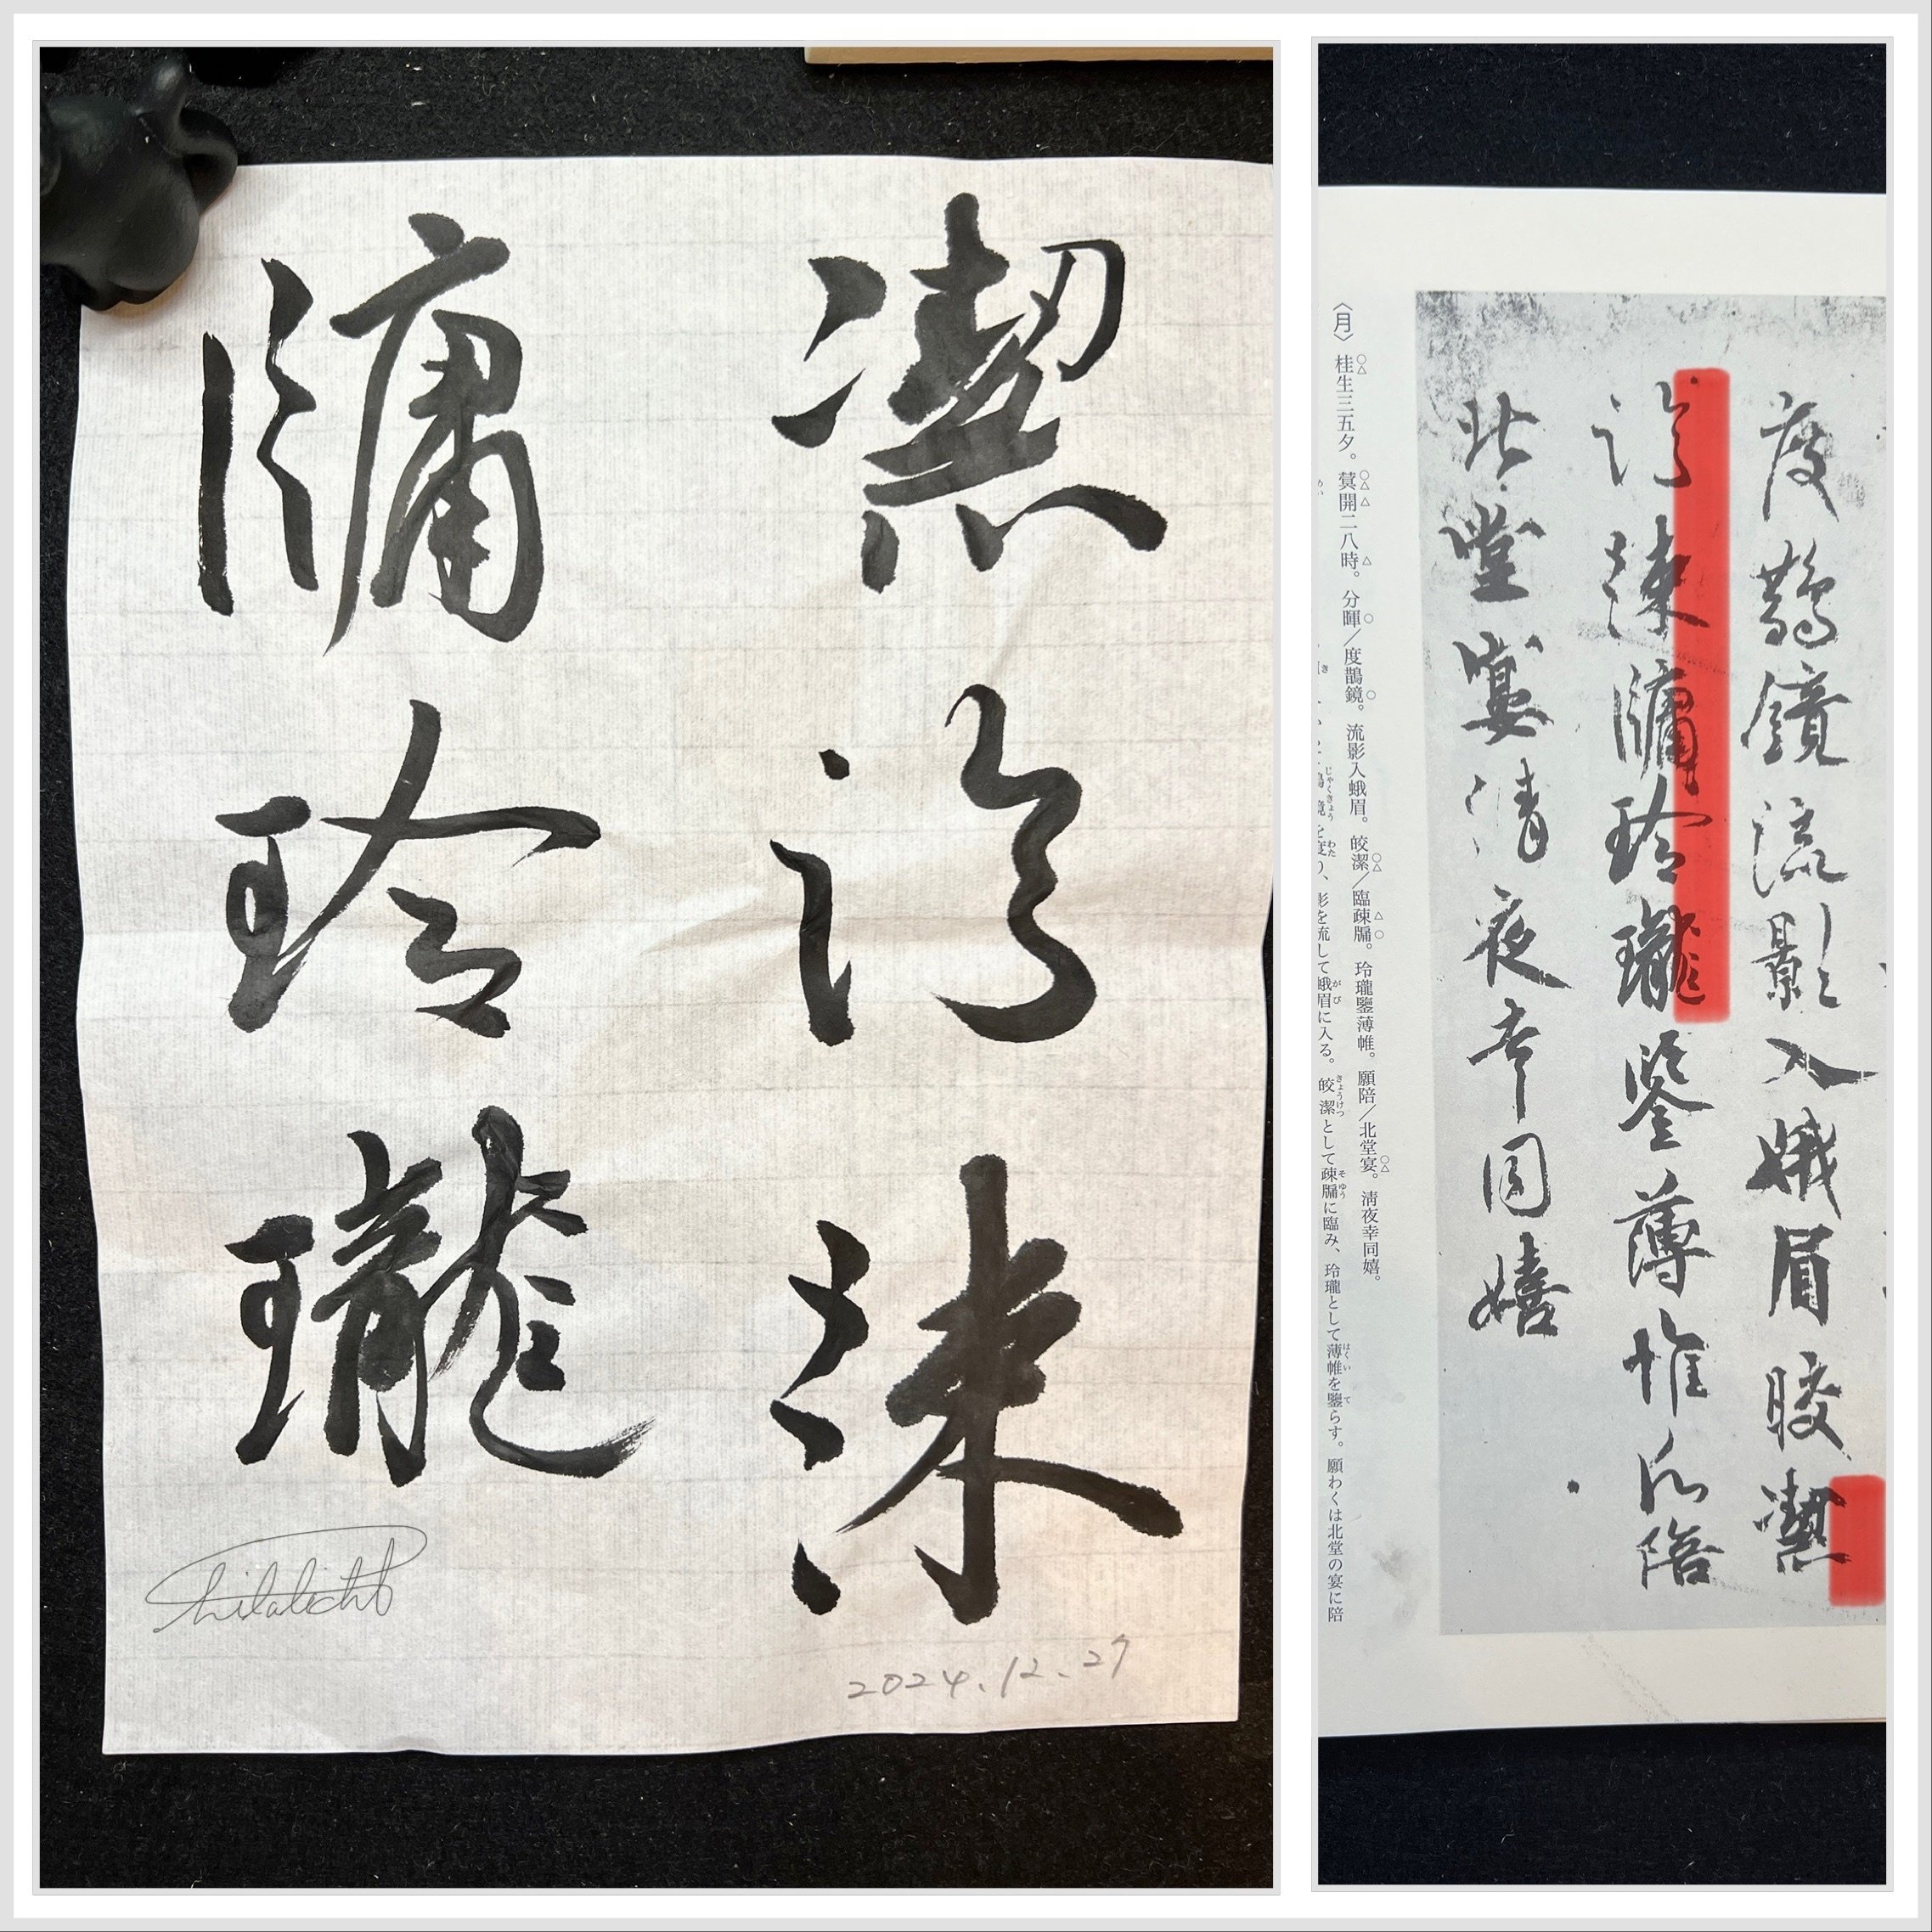 潔臨疎
牖玲瓏
2024.12.27
度鵲鏡流影入娥眉皎潔
臨疎牖玲瓏鑒薄帷願陪
北堂宴清夜幸同嬉
〈月〉 桂生三五夕。蓂開二八時。分暉／度鵲鏡。流影入蛾眉。皎潔／臨疎牖。玲瓏鑒薄帷。願陪／北堂宴。淸夜幸同嬉。
影を流して蛾眉に入る。皎潔として疎牖に臨み、玲瓏として薄帷を鑒らす。願わくは北堂の宴に陪